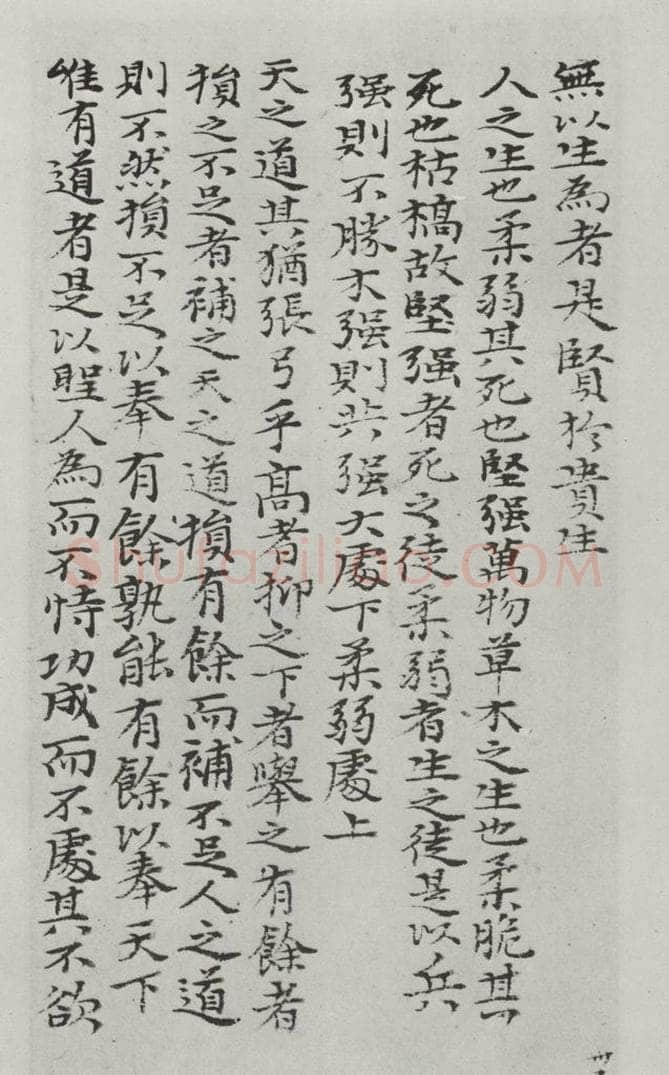 無以生為者是賢於貴生
人之生也柔弱其死也堅强萬物草木之生也柔脆其
死也枯槁故堅强者死之徒柔弱者生之徒是以兵
强則不勝木强則共强大處下柔弱處上
天之道其猶張弓乎高者抑之下者舉之有餘者
損之不足者補之天之道損有餘而補不足人之道
則不然損不足以奉有餘孰能有餘以奉天下
唯有道者是以聖人為而不恃功成而不處其不欲
Shufaziliao.COM